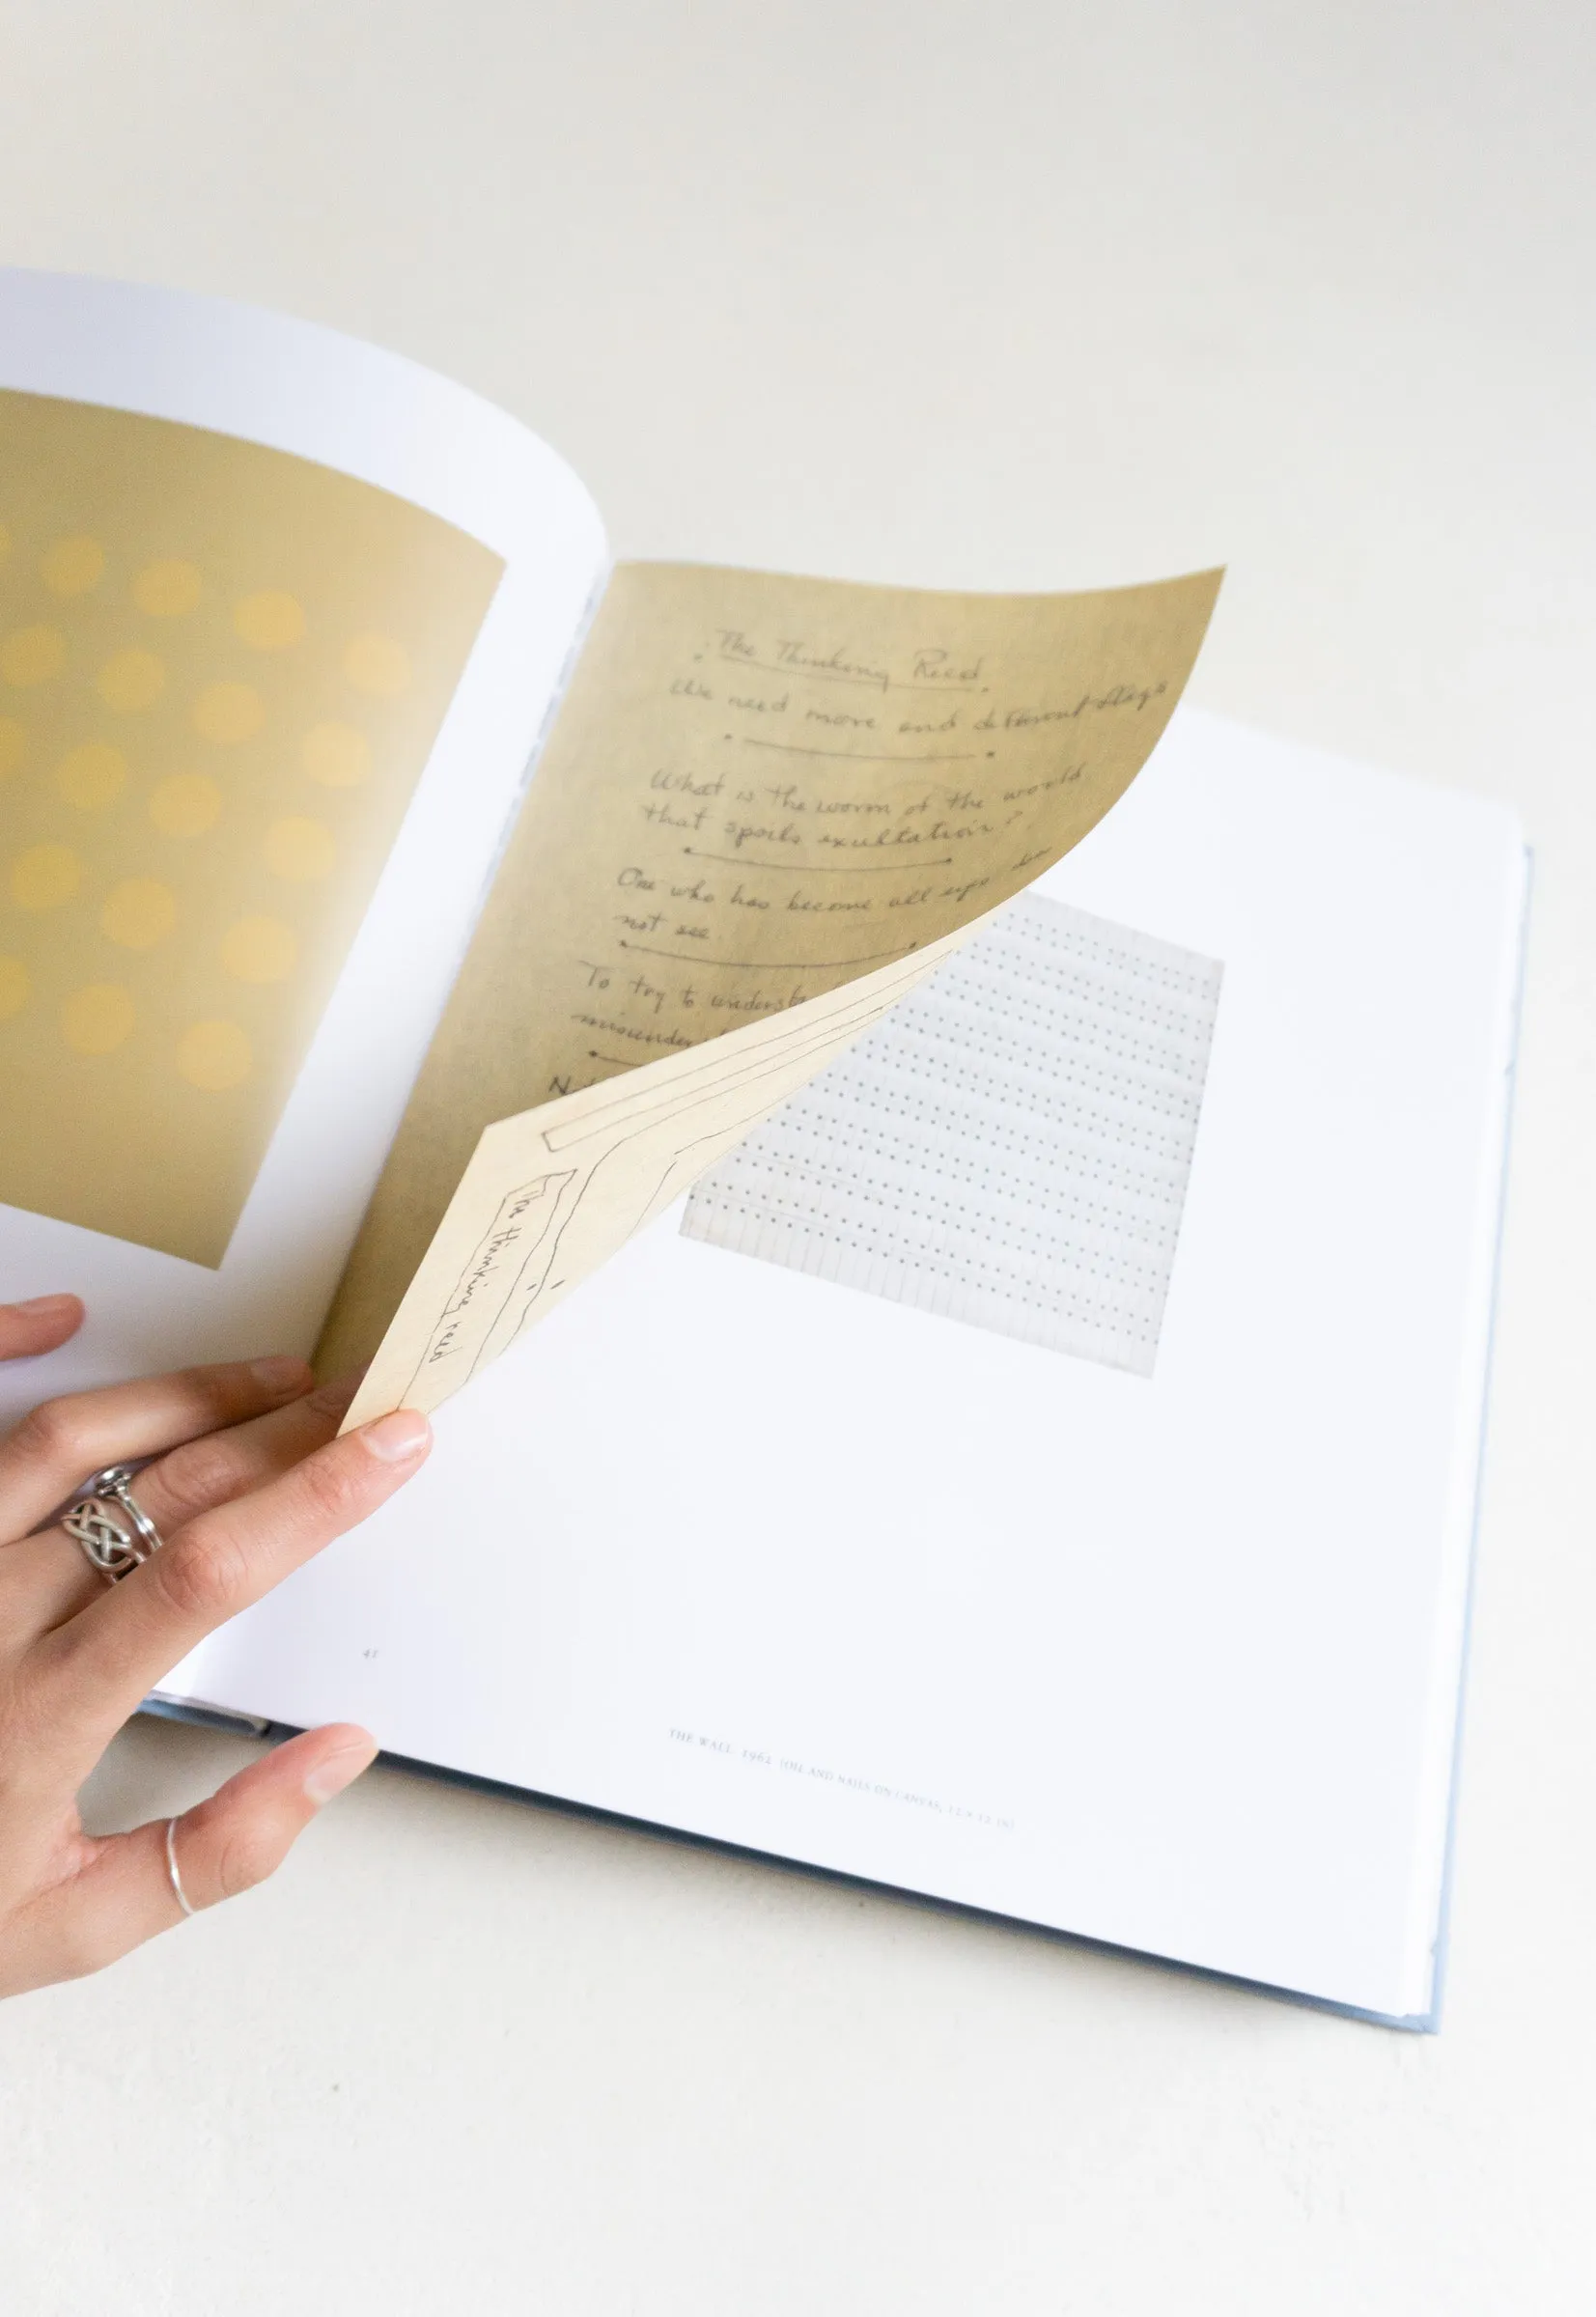 The Thinking Reed
We need more and different flags
What is the worm of the world
that spoils exultation?
One who has become all eyes does
not see.
To try to underst
misunder
N
the thinking reed
41
THE WALL 1962 (OIL AND NAILS ON CANVAS, 12 × 12 IN)